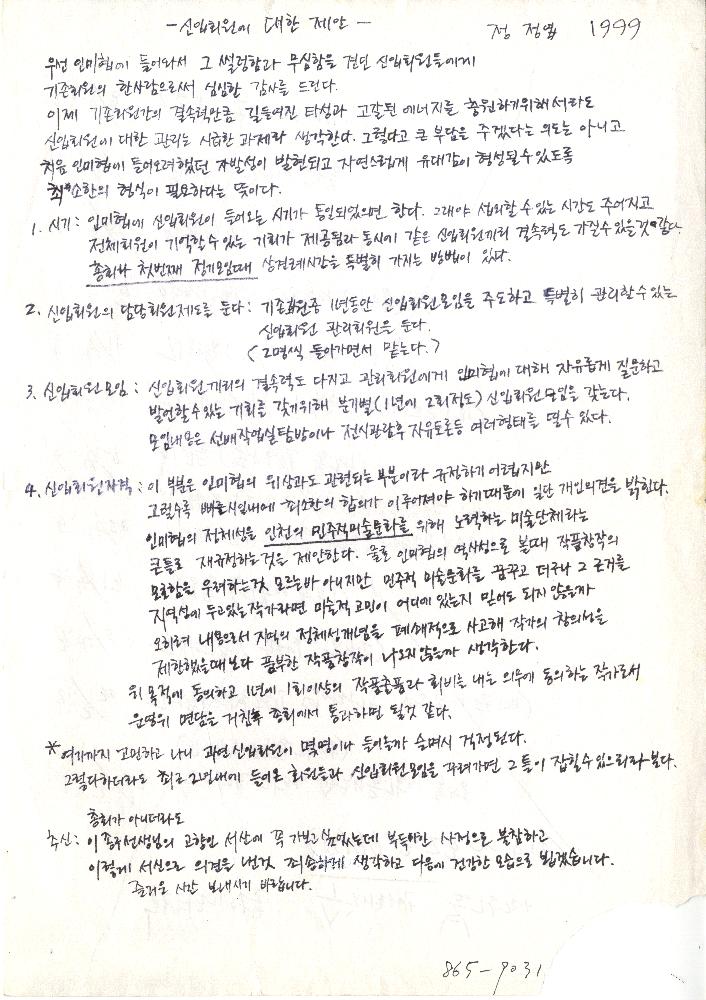 - 신입회원에 대한 제안 - 정 정엽 1999
우선 인미협에 들어와서 그 썰렁함과 무심함을 견딘 신입회원들에게
기존회원의 한사람으로써 심심한 감사를 드린다.
이제 기존회원간의 결속력만큼 길들여진 타성과 고갈된 에너지를 충원하기위해서라도
신입회원에 대한 관리는 시급한 과제라 생각한다. 그렇다고 큰 부담을 주겠다는 의도는 아니고
처음 인미협에 들어오려했던 자발성이 발현되고 자연스럽게 유대감이 형성될수있도록
최소한의 형식이 필요하다는 뜻이다.
1. 시기: 인미협에 신입회원이 들어오는 시기가 통일되었으면 한다. 그래야 섭외할수있는 시간도 주어지고
전체회원이 기억할수있는 기회가 제공됨과 동시에 같은 신입회원끼리 결속력도 가질수있을것같다.
총회나 첫번째 정기모임때 상견례시간을 특별히 가지는 방법이 있다.
2. 신입회원의 담당회원제도를 둔다: 기존회원중 1년동안 신입회원모임을 주도하고 특별히 관리할수있는
신입회원 관리회원을 둔다.
(2명씩 돌아가면서 맡는다.)
3. 신입회원모임: 신입회원끼리의 결속력도 다지고 관리회원에게 인미협에 대해 자유롭게 질문하고
발언할수있는 기회를 갖기위해 분기별(1년에 2회정도) 신입회원모임을 갖는다.
모임내용은 선배작업실탐방이나 전시관람후 자유토론등 여러형태를 띨수 있다.
4. 신입회원자격: 이 부분은 인미협의 위상과도 관련되는부분이라 규정하기어렵지만
그럴수록 빠른시일내에 최소한의 합의가 이루어져야 하기때문에 일단 개인의견을 밝힌다.
인미협의 정체성을 인천의 민주적미술문화를 위해 노력하는 미술단체라는
큰틀로 재규정하는것을 제안한다. 물론 인미협의 역사성으로 볼때 작품창작의
모호함을 우려하는것 모르는바 아니지만 민주적 미술문화를 꿈꾸고 더구나 그 근거를
지역성에 두고있는작가라면 미술적고민이 어디에 있는지 믿어도 되지않을까
오히려 내용으로서 지역의 정체성개념을 폐쇄적으로 사고해 작가의 창의성을
제한했을때보다 풍부한 작품창작이 나오지않을까 생각한다.
위 목적에 동의하고 1년에 1회이상의 작품출품과 회비를 내는 의무에 동의하는 작가로서
운영위 면담을 거친후 총회에서 통과하면 될것 같다.
* 여기까지 고민하고 나니 과연 신입회원이 몇명이나 들어올까 슬며시 걱정된다.
그렇다하더라도 최근 2년내에 들어온 회원들과 신입회원모임을 꾸려가면 그 틀이 잡힐수있으리라 본다.
총회가 아니더라도
추신: 이종구선생님의 고향인 서산에 꼭 가보고싶었는데 부득이한 사정으로 불참하고
이렇게 서신으로 의견을 낸것 죄송하게 생각하고 다음에 건강한 모습으로 뵙겠습니다.
즐거운 시간 보내시기 바랍니다.
865-9031